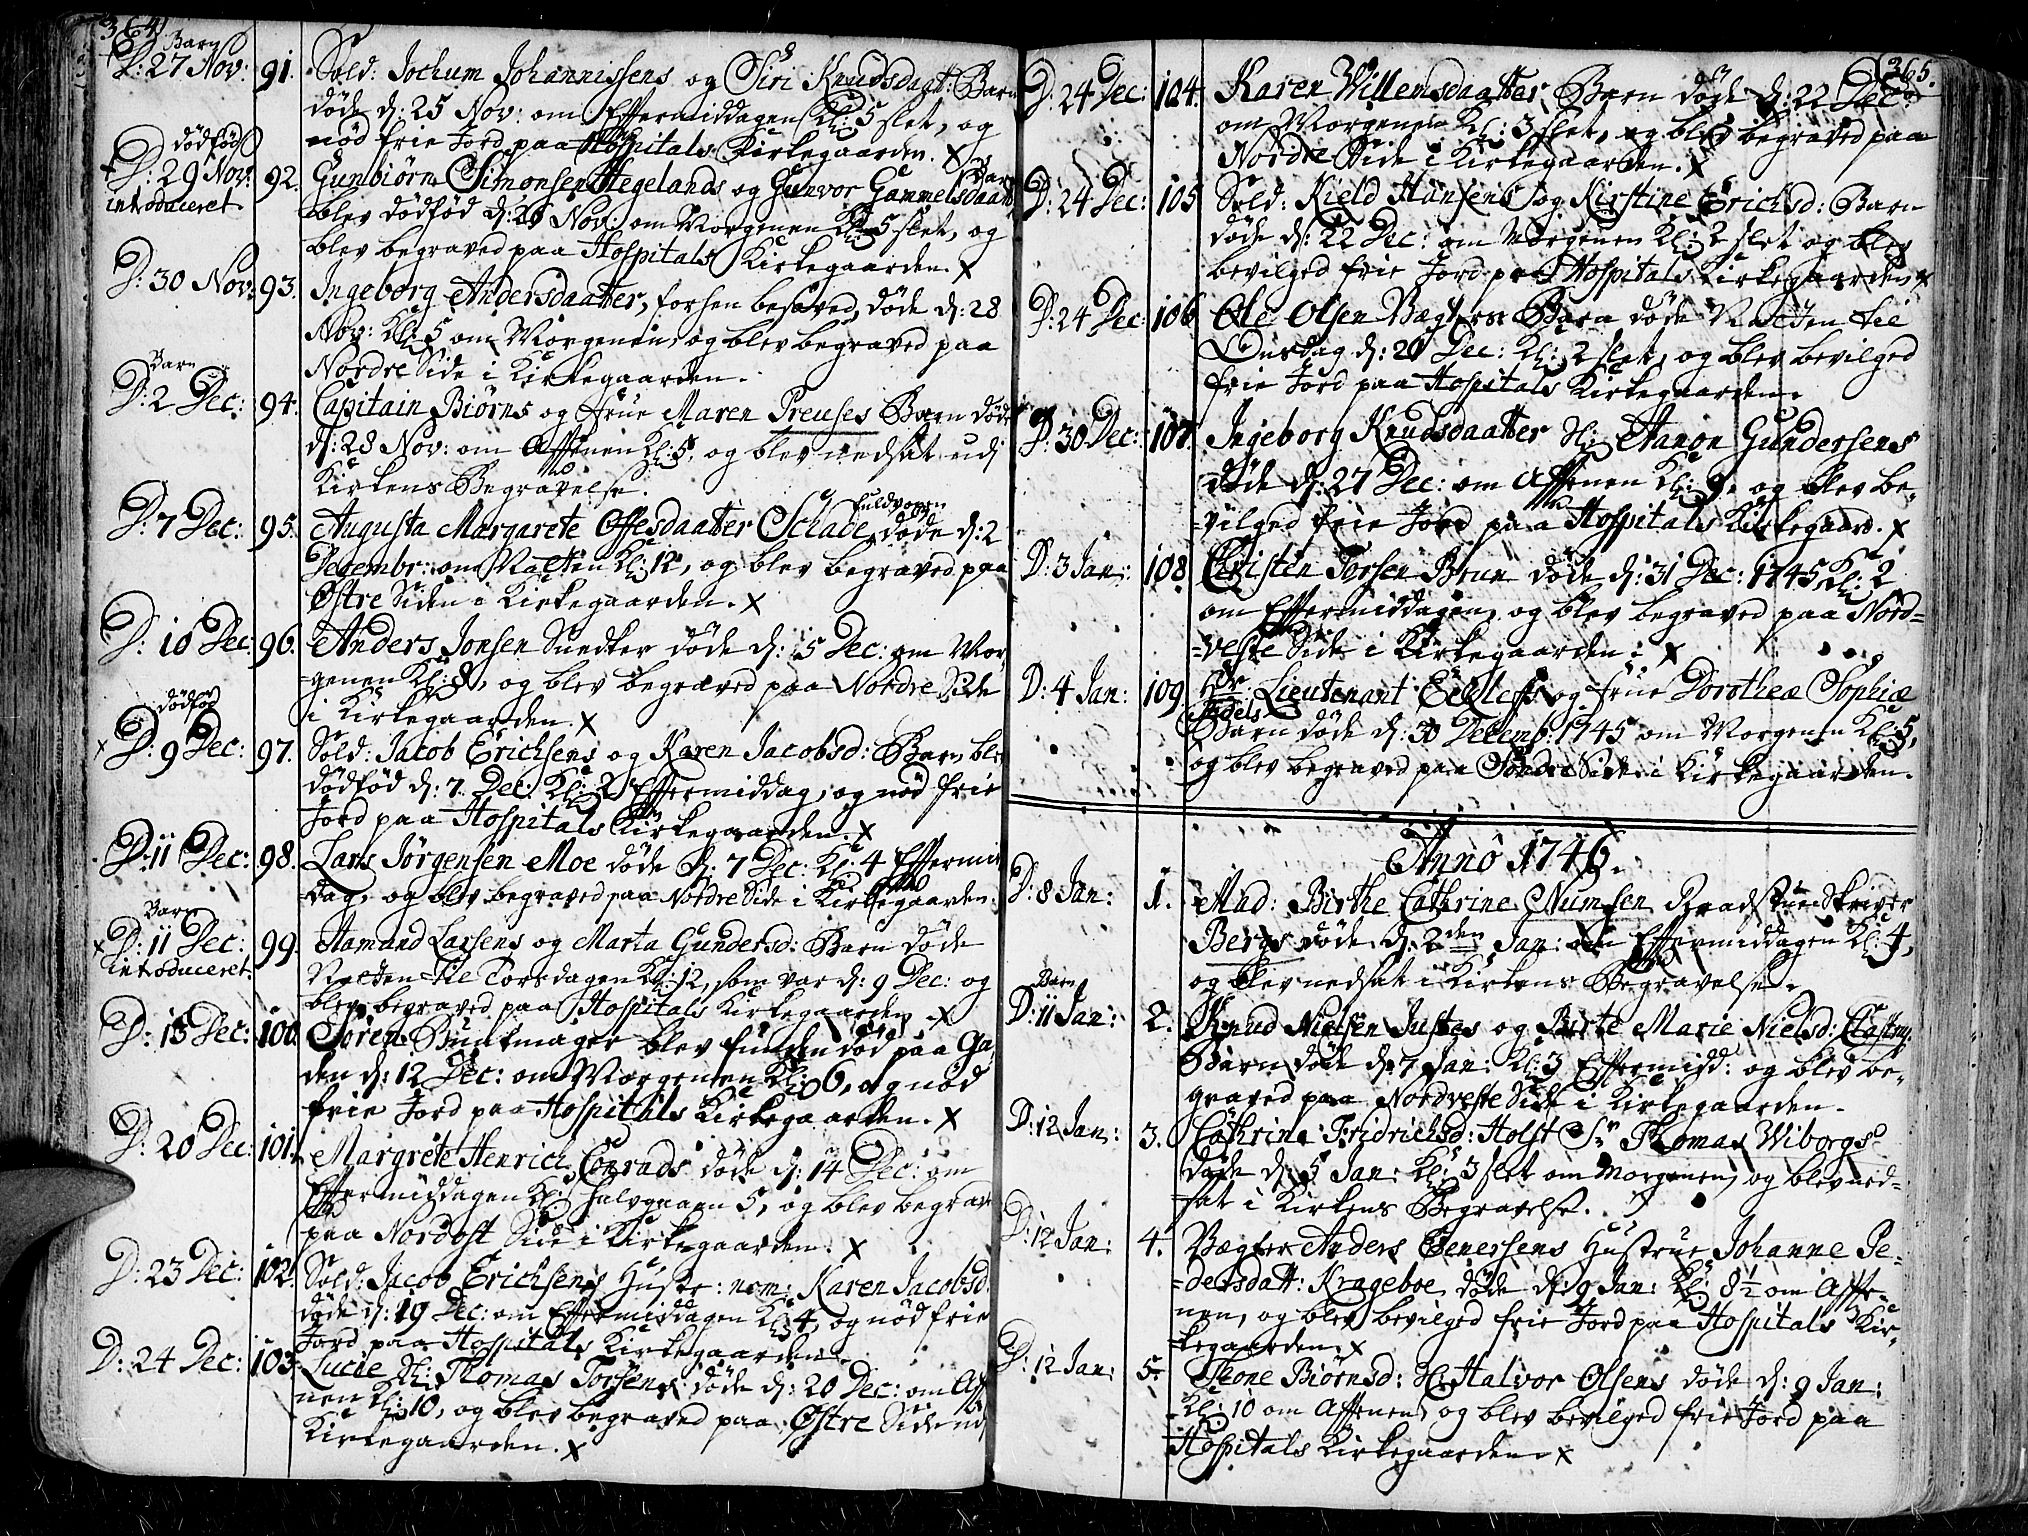 364.
Barn
D: 27 Nov: 91. Sold: Jochum Johannissens og Siri Knudsdaatt: Barn
døde d: 25 Nov: om Efftermiddagen Kl: 5 slet, og
nød frie Jord paa Hospitals Kirkegaarden. X
dødfød
D: 29 Nov: 92. Gunbiørn Simonsen Hegelands og Gunvor Gammelsdaatt Barn
introduceret.
blev dødfød d: 26 Nov: om Morgenen Kl: 5 slet, og
blev begraved paa Hospitals Kirkegaarden. X
D: 30 Nov: 93. Ingeborg Andersdaatter, forhen besøved, døde d: 28
Nov: Kl: 5 om Morgenen, og blev begraved paa
Nordre Side i Kirkegaarden.
Barn
D: 2 Dec: 94. Capitain Biørns og frue Maren Preuses Barn døde
d: 28 Nov: om Afftenen Kl: 5, og blev nedsat udj
Kirkens Begravelse.
fuldvoxen
D: 7 Dec: 95. Augusta Margarete Offesdaatter Schade, døde d: 2
Decembr: om Natten Kl: 12, og blev begraved paa
Østre Siden i Kirkegaarden. X
D: 10 Dec: 96. Anders Jonsen Snedker døde d: 5 Dec: om Mor-
genen Kl: 8, og blev begraved paa Nordre Side
i Kirkegaarden. X
dødfød
X D: 9 Dec: 97. Sold: Jacob Erichsens og Karen Jacobsd: Barn blev
dødfød d: 7 Dec: Kl: 2 Efftermiddag, og nød frie
Jord paa Hospitals Kirkegaarden. X
D: 11 Dec: 98. Lars Jørgensen Moe døde d: 7 Dec: Kl: 4 Eftermid
dag, og blev begraved paa Nordre Side i Kirkegaarden.
Barn
X D: 11 Dec: 99. Aamand Larsens og Marta Gundersd: Barn døde
introduceret.
Natten til Torsdagen Kl: 12, som var d: 9 Dec: og
blev begraved paa Hospitals Kirkegaarden X
D: 13 Dec: 100. Søren Bundtmager blev funden død paa Ga-
den d: 12 Dec: om Morgenen Kl: 6, og nød
frie Jord paa Hospitals Kirkegaarden. X
D: 20 Dec: 101. Margrete Henrich Conrads døde d: 14 Dec: om
Efftermiddagen Kl: halvgaaen 5, og blev begrave
paa Nordost Side i Kirkegaarden. X
D: 23 Dec: 102. Sold: Jacob Erichsens Hustr: nom: Karen Jacobsd
døde d: 19 Dec: om Efftermiddagen Kl: 4, og nød frie
Jord paa Hospitals Kirkegaarden.
D: 24 Dec: 103. Lucie Thomas Torsens døde d: 20 Dec: om Aff
nen Kl: 10, og blev begraved paa Østre Side ud
Kirkegaarden. X
365.
D: 24 Dec: 104. Karen Willemsdaatter Barn døde d: 22 Dec:
om Morgenen Kl: 3 slet, og blev begraved paa
Nordre Side i Kirkegaarden. X
D: 24 Dec: 105 Sold: Kield Hansens og Kirstine Erichsd: Barn
døde d: 22 Dec: om Morgenen Kl: 2 slet og blev
bevilged frie Jord paa Hospitals Kirkegaarden X
D: 24 Dec: 106 Ole Olsen Vægters Barn døde Natten til
Onsdag d: 20 Dec: Kl: 2 slet, og blev bevilged
frie Jord paa Hospitals Kirkegaarden.
D: 30 Dec: 107. Ingeborg Knudsdaatter Aanon Gundersens
døde d: 27 Dec: om Afftenen Kl: 9, og blev be-
vilged frie Jord paa Hospitals Kirkegaard. X
D: 3 Jan: 108 Christen Torsen Brun døde d: 31 Dec: 1745 Kl: 2
om Efftermiddagen, og blev begraved paa Nord-
veste Side i Kirkegaarden: X
D: 4 Jan: 109 Hr Lieutenant og frue Dorotheæ Sophiæ
Barn døde d: 30 Decemb: 1745 om Morgenen Kl: 5,
og blev begraved paa Søndre Side i Kirkegaarden.
Anno 1746.
D: 8 Jan: 1. Mad: Birthe Cathrine Numsen Raadstue Skriver
Bergs døde d: 2den Jan: om Efftermiddagen Kl: 4,
og blev nedsat i Kirkens Begravelse.
Barn
D: 11 Jan: 2. Knud Nielsen Justes og Birte Marie Nielsd:
Barn døde d: 7 Jan: Kl: 3 Efftermidd: og blev be-
graved paa Nordveste Side i Kirkegaarden.
D: 12 Jan: 3. Cathrine Fridrichsd: Holst Sr Thomas Wiborgs
døde d: 5 Jan: Kl: 3 slet om Morgenen, og blev ned-
sat i Kirkens Begravelse.
D: 12 Jan: 4. Vægter Anders Enersens Hustrue Johanne Pe-
dersdatt: Krageboe, døde d: 9 Jan: Kl: 8½ om Affte-
nen, og blev bevilged frie Jord paa Hospitals Kir-
kegaarden X
D: 12 Jan: 5. Thone Biørnsd: Halvor Olsens døde d: 9 Jan:
Kl: 10 om Afftenen, og blev bevilged frie Jord paa
Hospitals Kirkegaarden. X